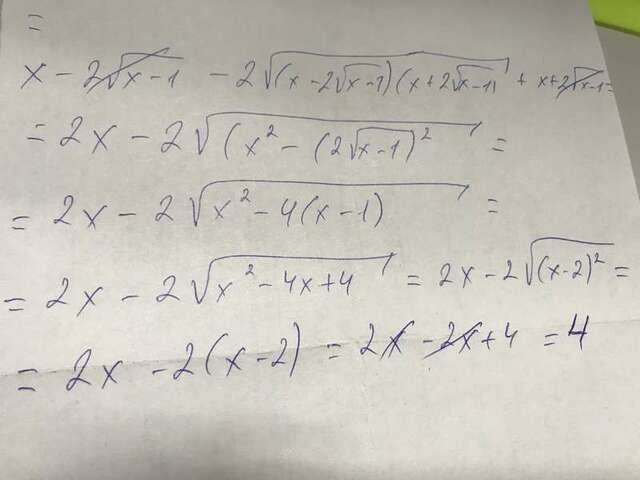 =
x - 2√x-1 - 2√(x-2√x-1)(x+2√x-1) + x+2√x-1 =
= 2x - 2√(x² - (2√x-1)² =
= 2x - 2√x² - 4(x-1) =
= 2x - 2√x² - 4x+4 = 2x - 2√(x-2)² =
= 2x - 2(x-2) = 2x - 2x + 4 = 4